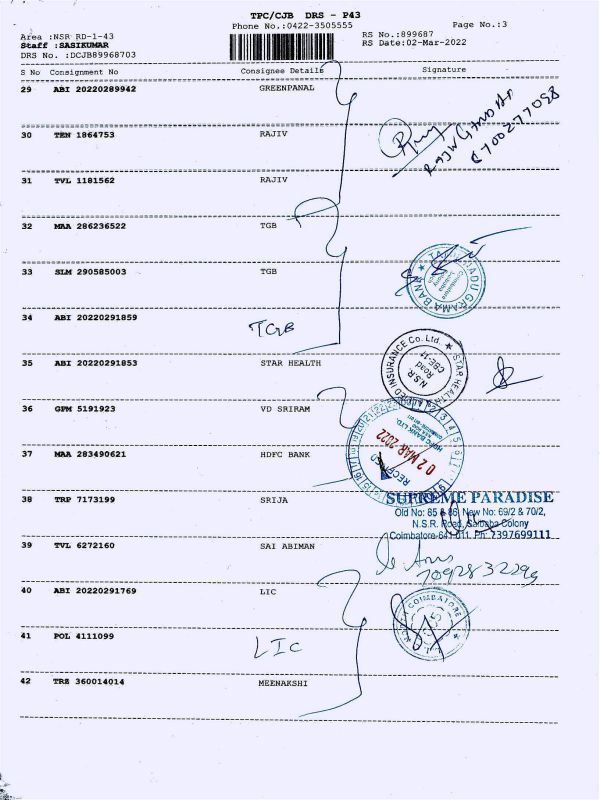 TPC/CJB DRS - P43
Phone No.:0422-3505555
Page No.:3
Area :NSR RD-1-43
RS No.:899687
Staff :SASIKUMAR
RS Date:02-Mar-2022
DRS No. :DCJB89968703
S No Consignment No Consignee Details Signature
29 ABI 20220289942 GREENPANAL
30 TEN 1864753 RAJIV
31 TVL 1181562 RAJIV
32 MAA 286236522 TGB
33 SLM 290585003 TGB
TAMILNADU GRAMA BANK
34 ABI 20220291859 TGB
35 ABI 20220291853 STAR HEALTH
STAR HEALTH
INSURANCE Co. Ltd.
N.S.R
Road
CBE-11
36 GPM 5191923 VD SRIRAM
HDFC BANK LTD.
02 MAR 2022
RECEIVED
37 MAA 283490621 HDFC BANK
38 TRP 7173199 SRIJA
SUPREME PARADISE
Old No: 85 & 86, New No: 69/2 & 70/2,
N.S.R. Road, Saibaba Colony
Coimbatore-641 011. Ph: 7397699111
39 TVL 6272160 SAI ABIMAN
40 ABI 20220291769 LIC
COIMBATORE
41 POL 4111099 LIC
42 TRZ 360014014 MEENAKSHI